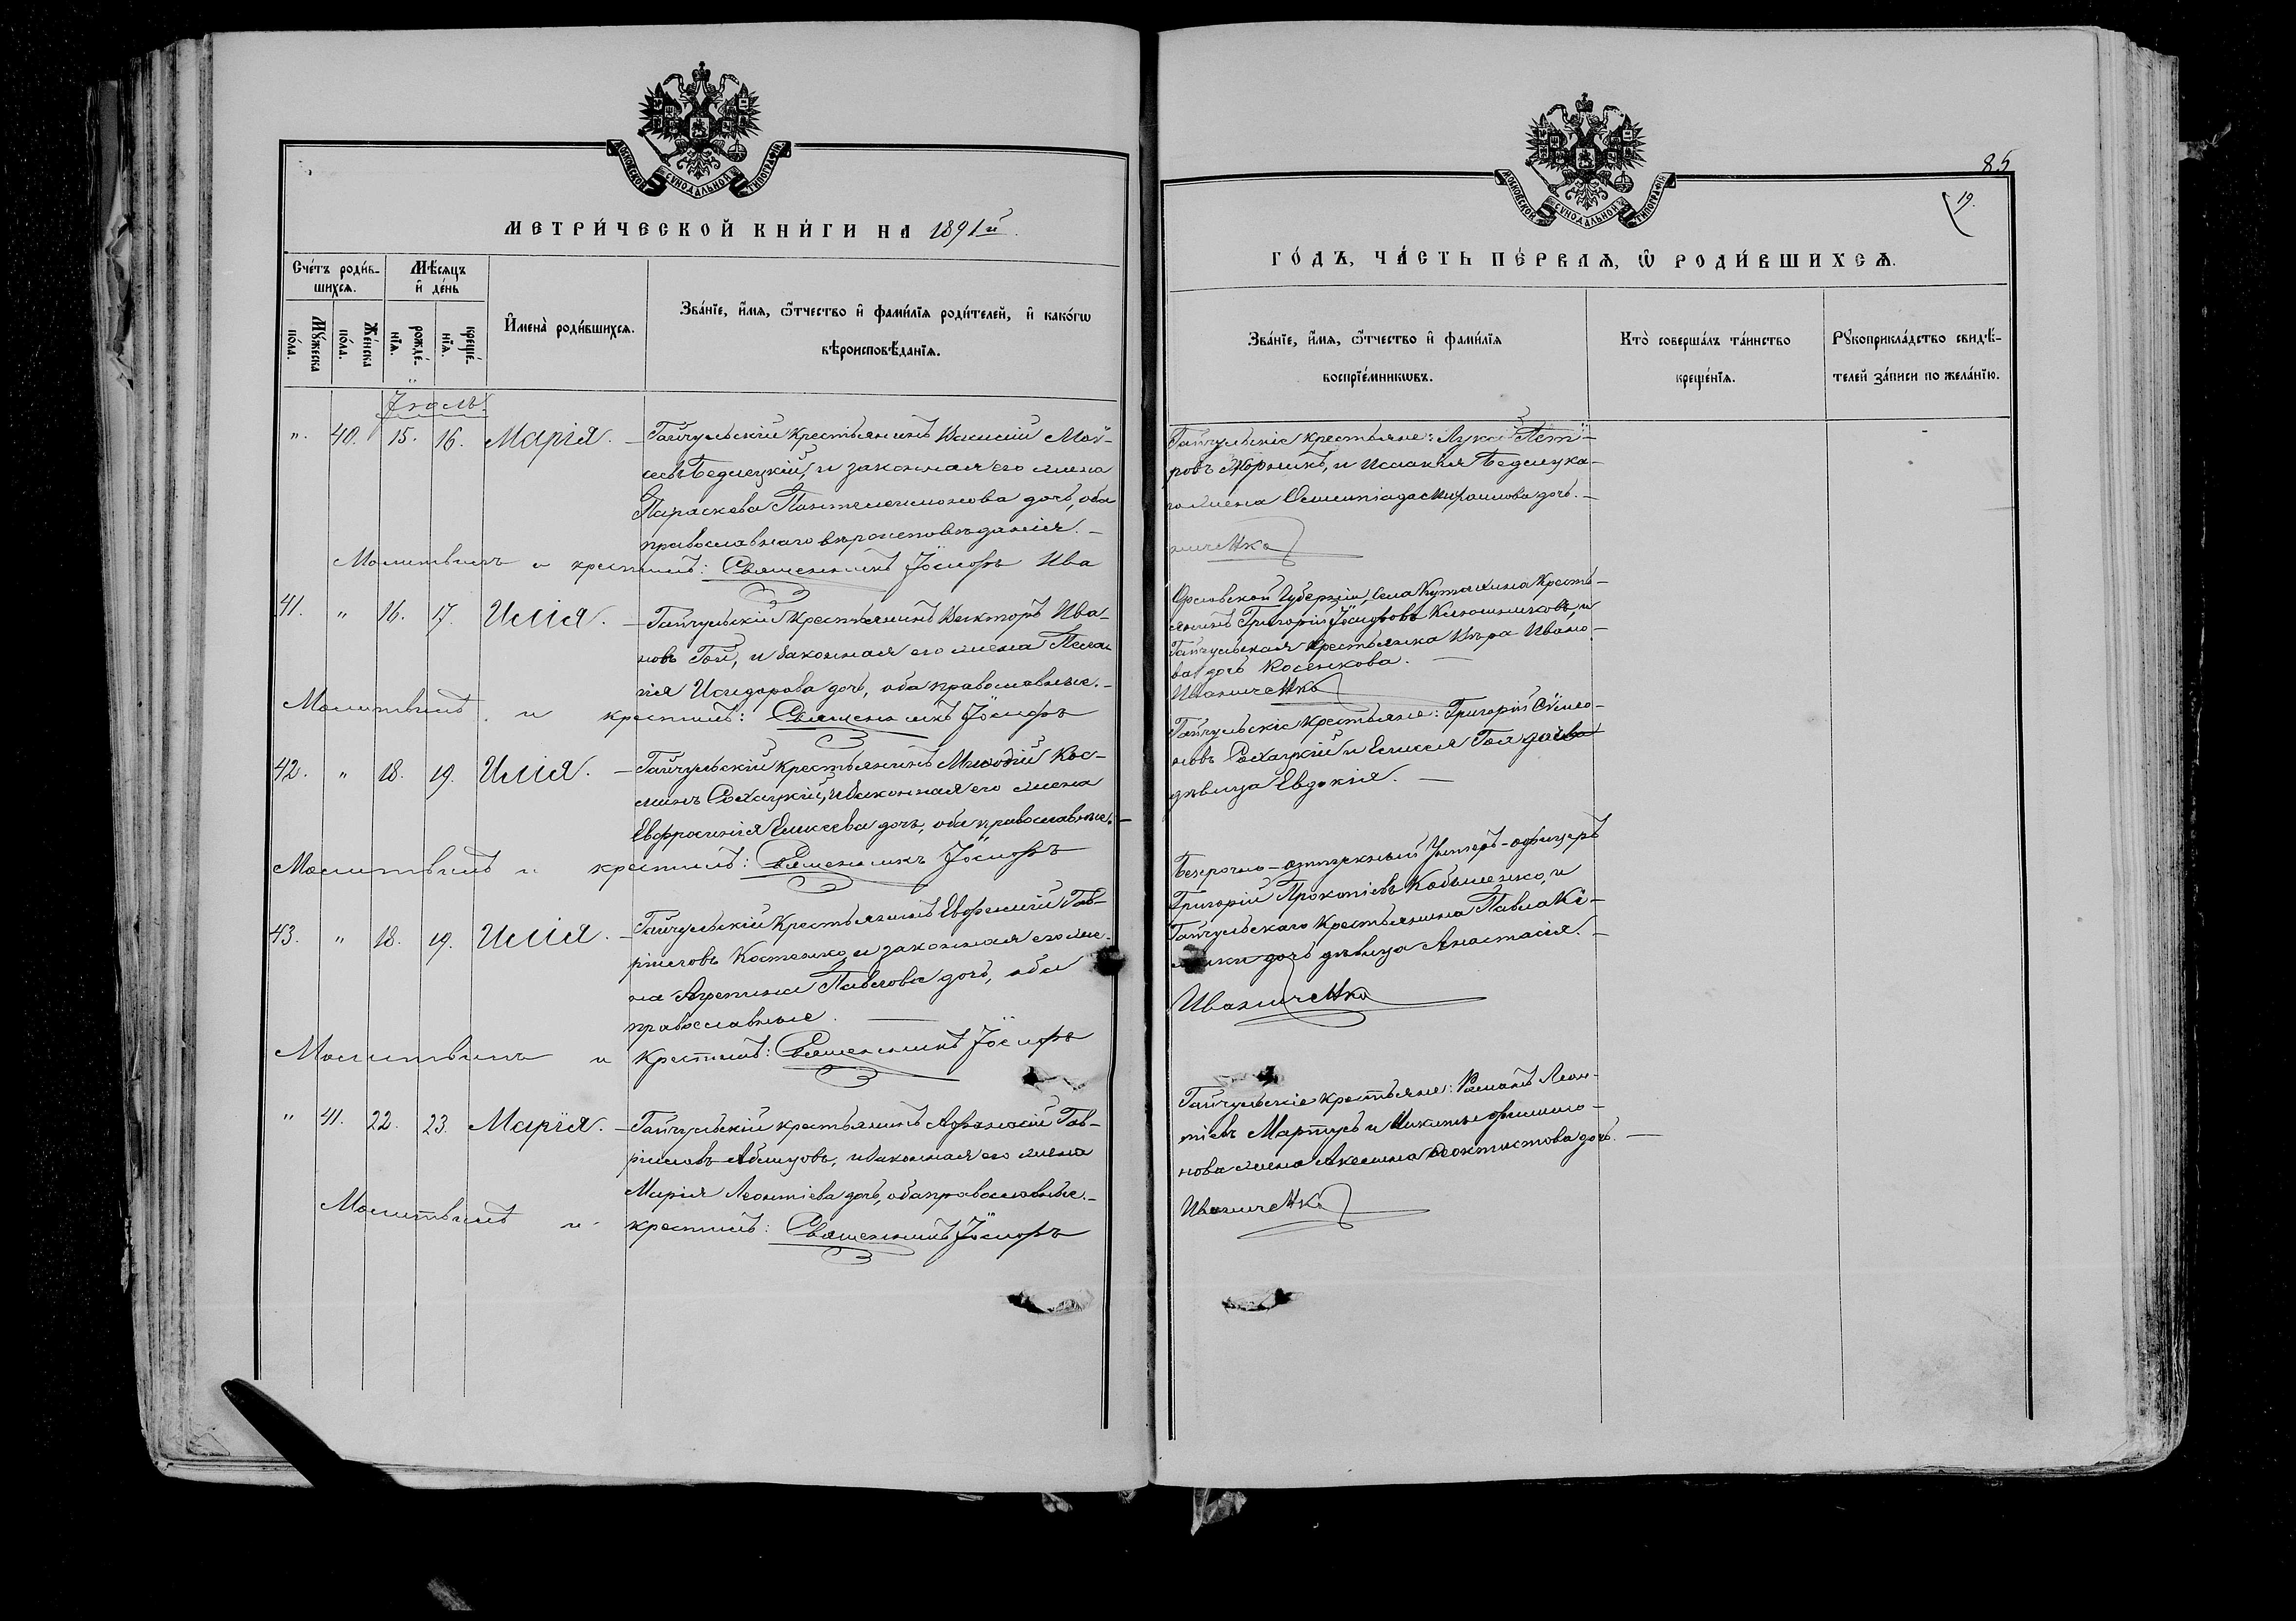 МОСКОВСКОЙ СѴНОДАЛЬНОЙ ТИПОГРАФІИ
МЕТРИ́ЧЕСКОЙ КНИ́ГИ НА 1891й.
Сче́тъ роди́в-
шихсѧ.
Мѣ́сѧцъ
и҆ де́нь
Мꙋ́жеска
по́ла.
Же́нска
по́ла.
рожде́-
нїѧ.
креще́-
нїѧ.
И҆мена̀ роди́вшихсѧ.
Зва́нїе, и҆́мѧ, ѻ҆́тчество и҆ фами́лїѧ роди́телей, и҆ како́гѡ
вѣроисповѣ́данїѧ.
Іюль.
". 40. 15. 16. Марія. – Гайчульскій крестьянинъ Василій Мой-
сеевъ Бедлецкій, и законная его жена
Параскева Пантелеимонова дочь, оба
православнаго вѣроисповѣданія. –
Молитвилъ и крестилъ: Священникъ Іосифъ Ива
41. " 16. 17. Илія. – Гайчульскій крестьянинъ Викторъ Ива-
новъ Гой, и законная его жена Пелаг
гія Исидорова дочь, оба православные. –
Молитвилъ и крестилъ: Священникъ Іосифъ
42. " 18. 19. Илія. – Гайчульскій крестьянинъ Меѳодій Кос-
минъ Рохацкій, и законная его жена
Евфросинія Елисеева дочь, оба православные. –
Молитвилъ и крестилъ: Священникъ Іосифъ
43. " 18. 19. Илія. – Гайчульскій крестьянинъ Евфимій Гав-
ріиловъ Костенко, и законная его же-
на Агрепина Павлова дочь, оба
православные. –
Молитвилъ и крестилъ: Священникъ Іосифъ
" 41. 22. 23. Марія. – Гайчульскій крестьянинъ Афанасій Гав-
ріиловъ, и законная его жена
Марія Леонтіева дочь, оба православные. –
Молитвилъ и крестилъ: Священникъ Іосифъ
85
19.
МОСКОВСКОЙ СѴНОДАЛЬНОЙ ТИПОГРАФІИ
ГО́ДЪ, ЧА́СТЬ ПЕ́РВАѦ, Ѽ РОДИ́ВШИХСѦ.
Зва́нїе, и҆́мѧ, ѻ҆́тчество и҆ фами́лїѧ
воспрїе́мникѡвъ.
Кто̀ соверша́лъ та́инство
креще́нїѧ.
Рꙋкоприкла́дство свидѣ́-
телей за́писи по жела́нїю.
Гайчульскіе крестьяне: Лука Пет-
ровъ, и Исаакія Бедлецка-
го жена Олимпіада Михаилова дочь. –
ниченко
Орловской Губерніи, села крестъ-
янинъ Григорій Іосифовъ Ключниковъ, и
Гайчульская крестьянка Вѣра Ивано-
ва дочь Косенкова. –
Иваниченко
Гайчульскіе крестьяне: Григорій Сѵмео-
новъ Рохацкій и Елисея Гоя дочь
дѣвица Евдокія. –
Безсрочно-отпускный Унтеръ-офицеръ
Григорій Прокопіевъ Кобыленко, и
Гайчульскаго крестьянина Павла
дочь дѣвица Анастасія. –
Иваниченко
Гайчульскіе крестьяне: Романъ Леон-
тіевъ Мартусь и Никиты Филимо-
нова жена Акилина Ѳеоктистова дочь. –
Иваниченко